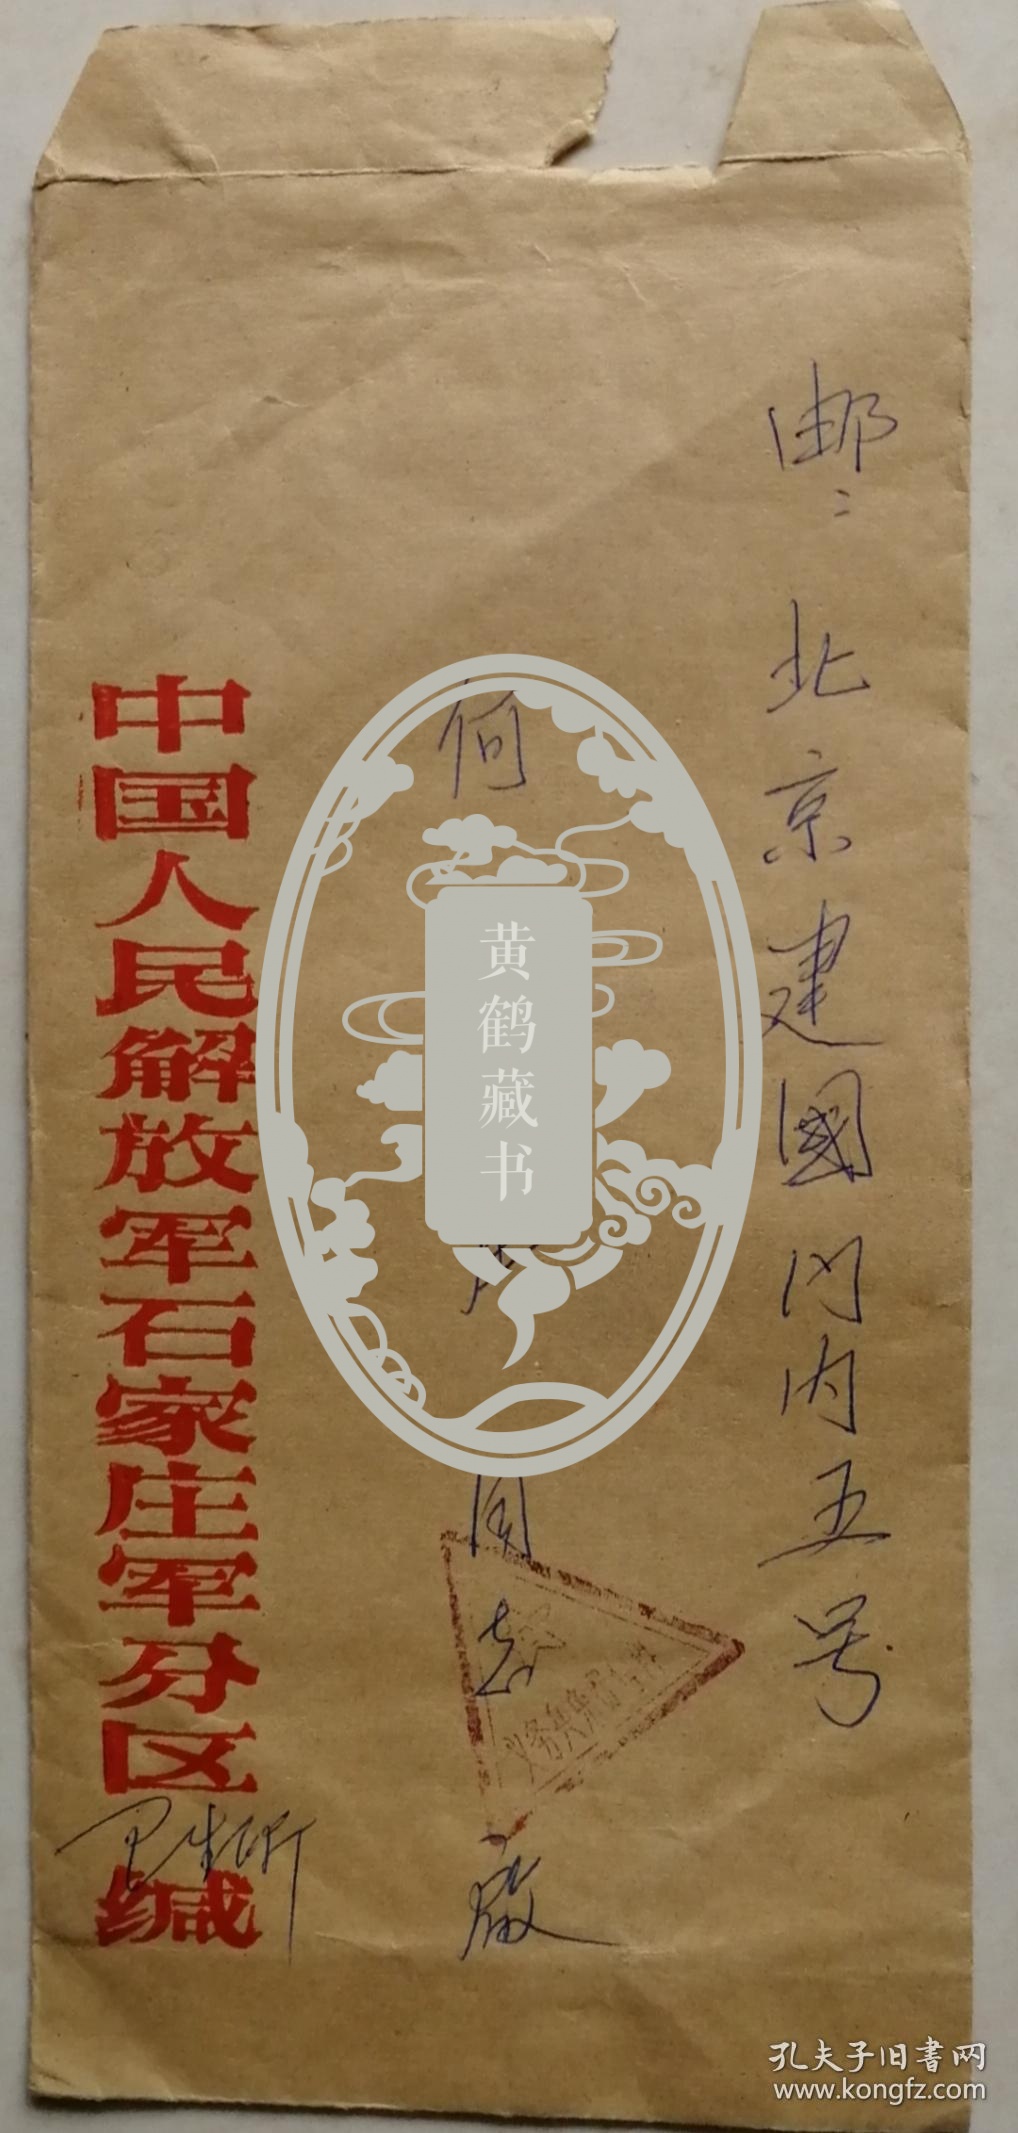 邮：北京建國门内五号
何
同志
啟
中国人民解放军石家庄军分区缄
卫生所
义务兵免费信件
黄鹤藏书
孔夫子旧書网
www.kongfz.com